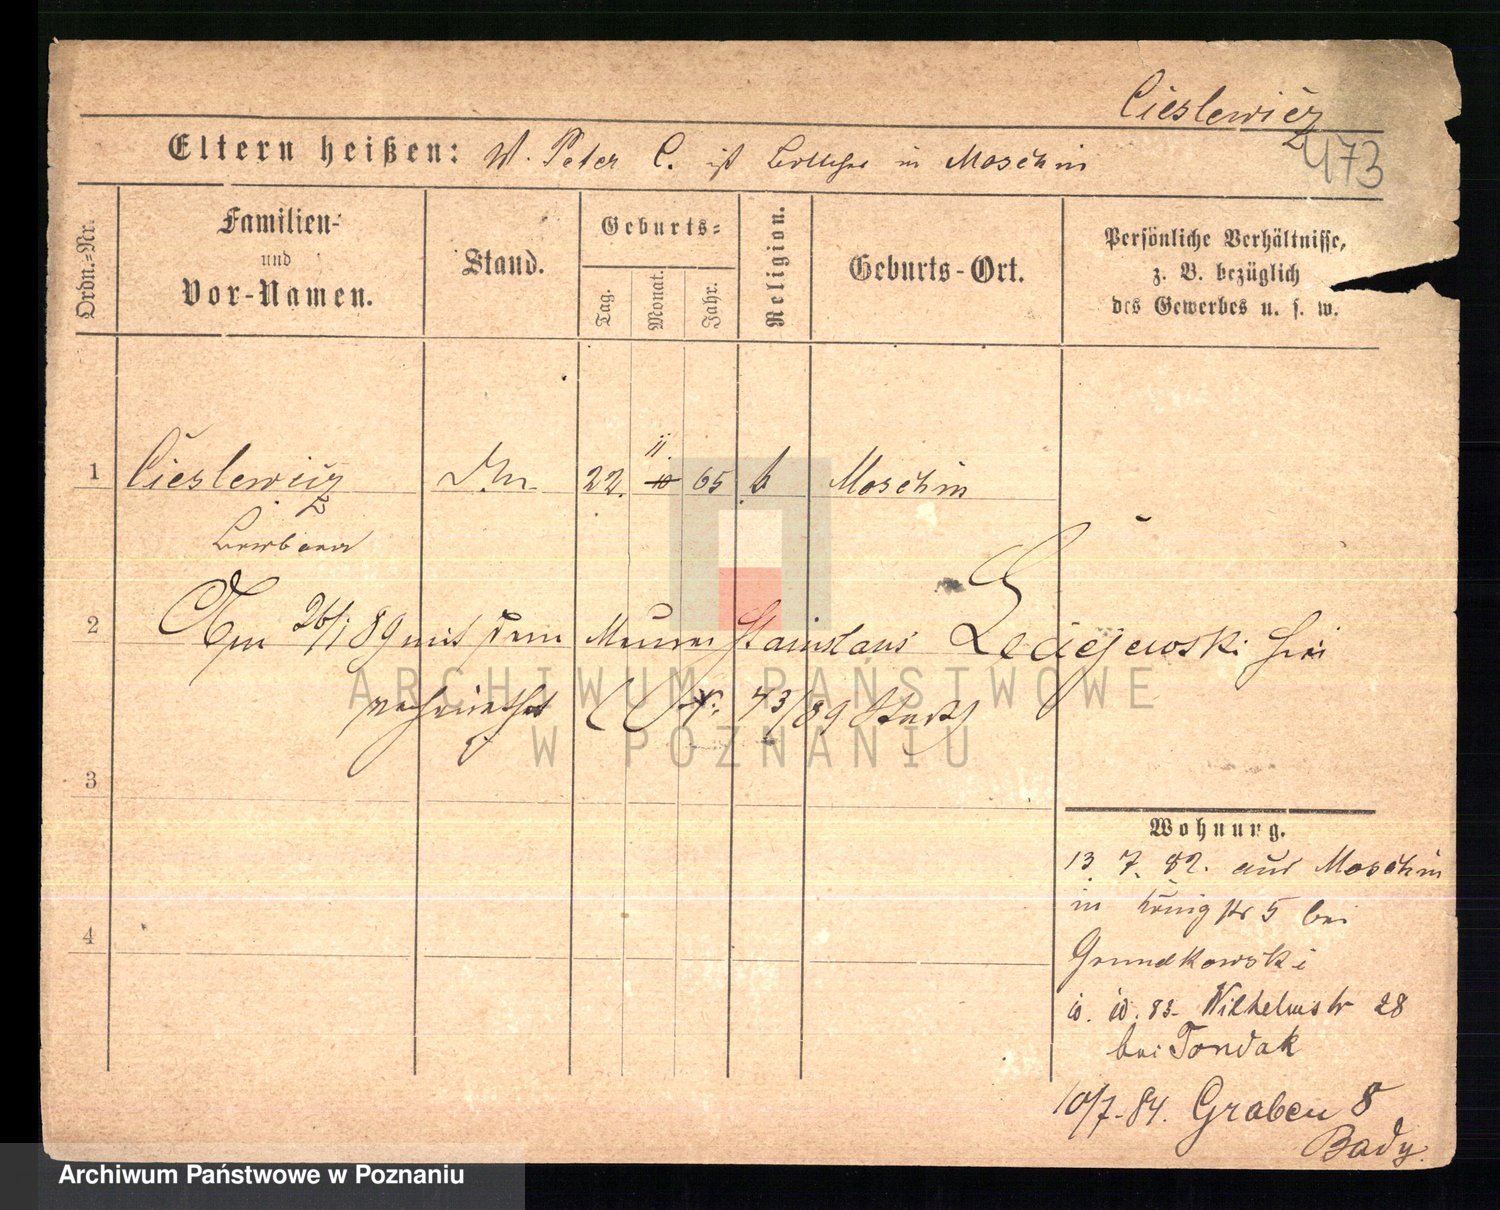 Cieslewicz
473
Eltern heißen: V. Peter C. ist in Moschin
Ordn.-Nr.
Familien-
und
Vor-Namen.
Stand.
Geburts-
Tag.
Monat.
Jahr.
Religion.
Geburts-Ort.
Persönliche Verhältnisse,
z. B. bezüglich
des Gewerbes u. s. w.
11.
1 Cieslewicz 22. 10 65 k Moschin
Barbara
2 Am 26/1 89 mit dem Maurer Stanislaus Leciejewski hier
verheirathet 43/89 
3
4
Wohnung.
13. 7. 82. aus Moschin
in Königstr 5 bei
Grundkowski
10. 10. 83. Wilhelmstr 28
bei Tondak
10/7-84. Graben 8
Bady.
ARCHIWUM PAŃSTWOWE
W POZNANIU
Archiwum Państwowe w Poznaniu